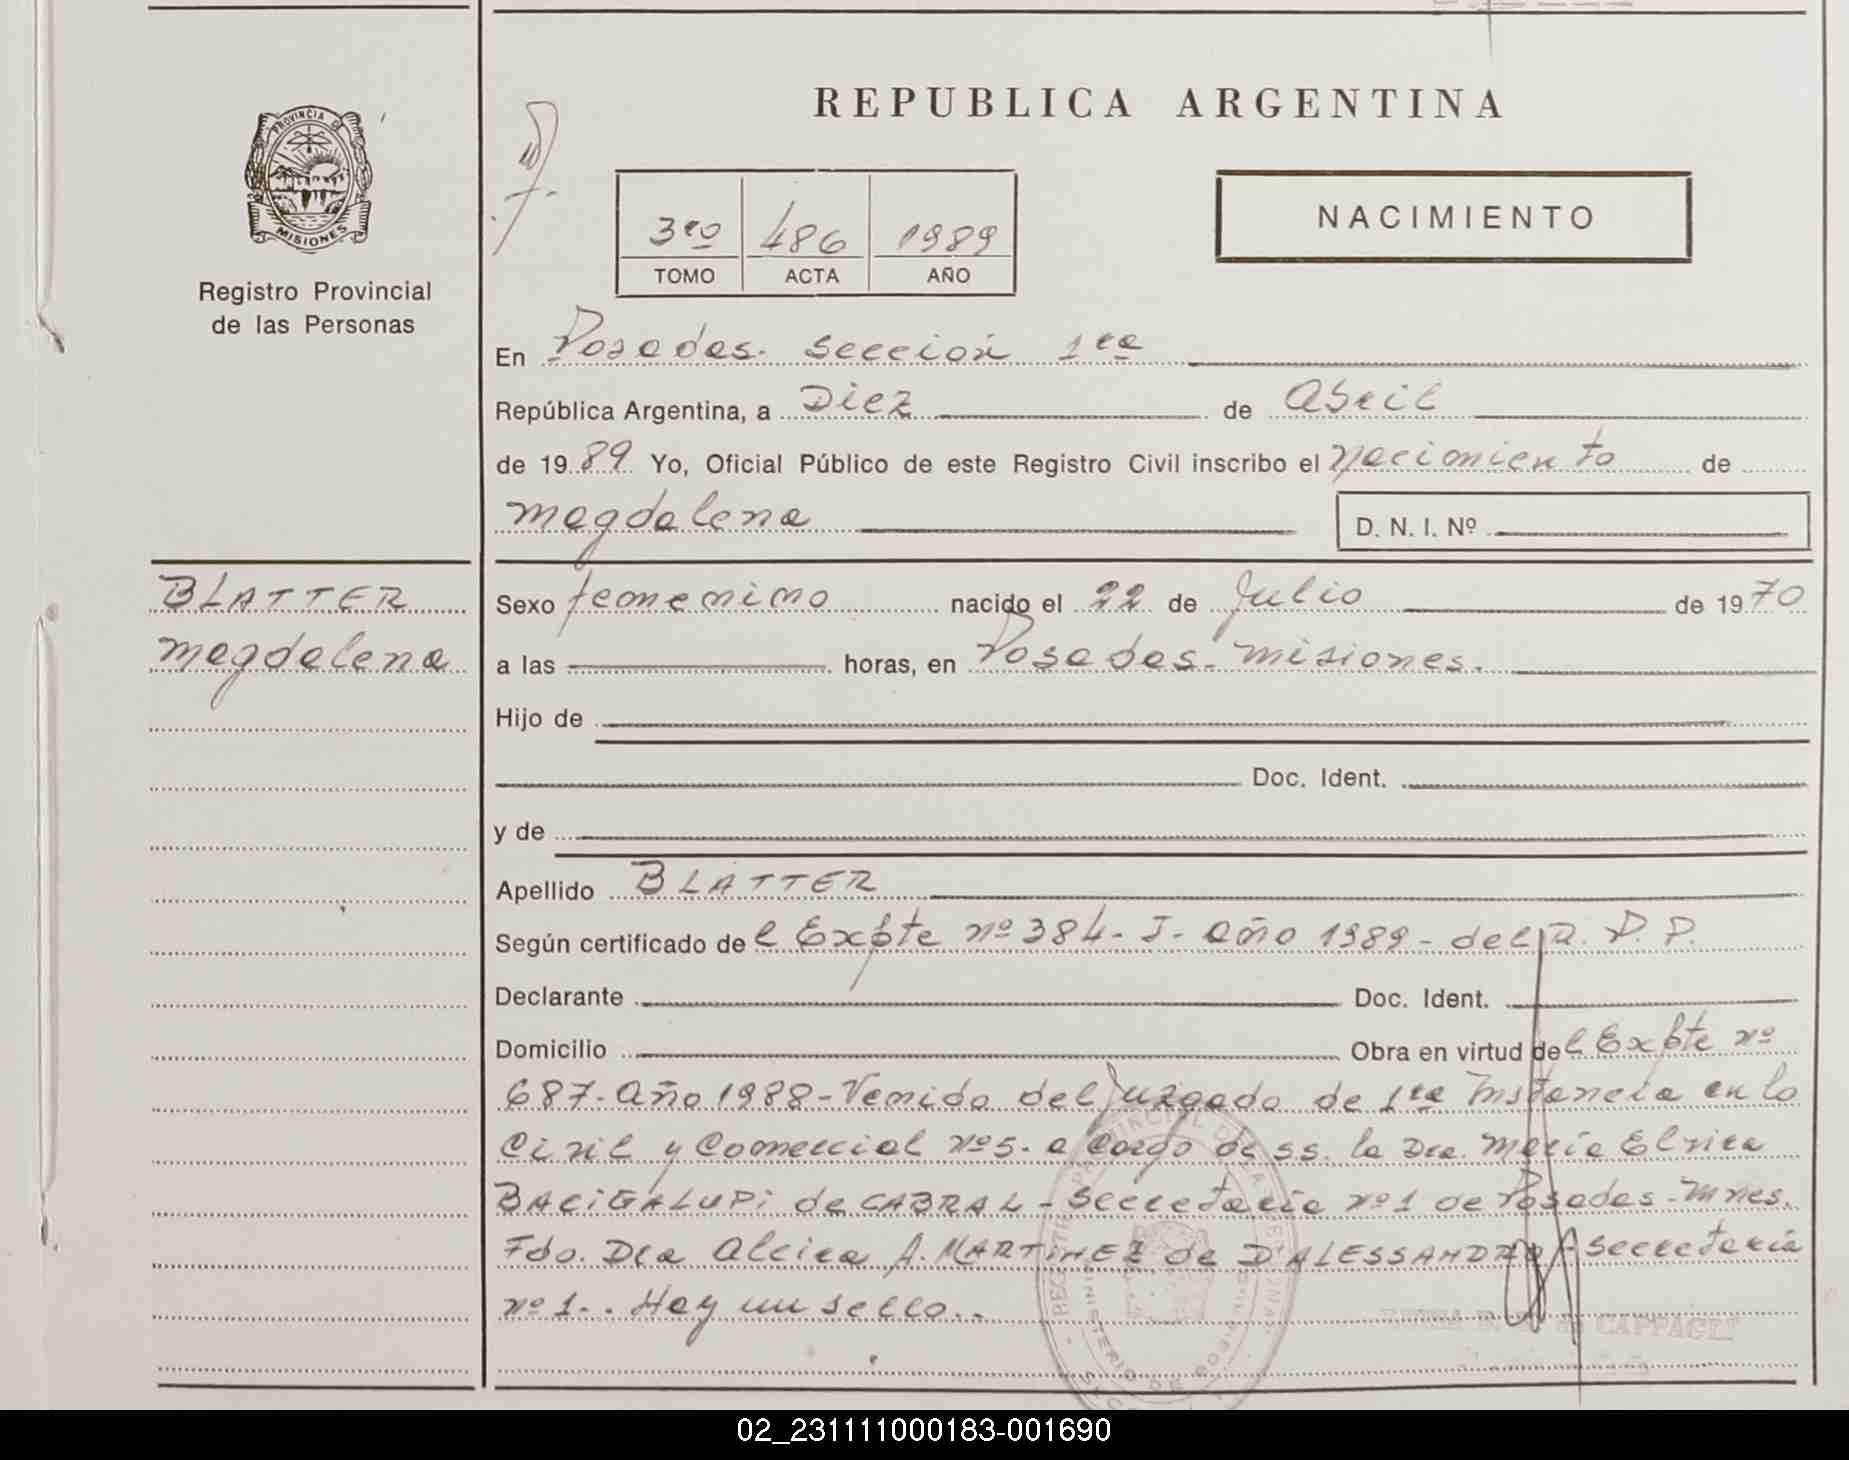 REPUBLICA ARGENTINA
PROVINCIA DE
MISIONES
Registro Provincial
de las Personas
3ro 486 1989
TOMO ACTA AÑO
NACIMIENTO
En Posadas. Sección 1ra
República Argentina, a Diez de Abril
de 1989 Yo, Oficial Público de este Registro Civil inscribo el nacimiento de
Magdalena D. N. I. Nº
BLATTER
Magdalena
Sexo femenino nacido el 22 de Julio de 1970
a las horas, en Posadas - Misiones.
Hijo de
Doc. Ident.
y de
Apellido BLATTER
Según certificado del Expte nº 384 - J - año 1989 - del R. P. P.
Declarante Doc. Ident.
Domicilio Obra en virtud del Expte nº
687 - Año 1988 - Venido del Juzgado de 1ra Instancia en lo
Civil y Comercial nº 5 - a cargo de SS. la Dra. María Elvira
BACIGALUPI de CABRAL - Secretaría nº 1 de Posadas - Mnes.
Fdo. Dra Alcira A. MARTINEZ de D'ALESSANDRO - Secretaría
nº 1 - . Hay un sello..
de CAPPAGLI
02_231111000183-001690